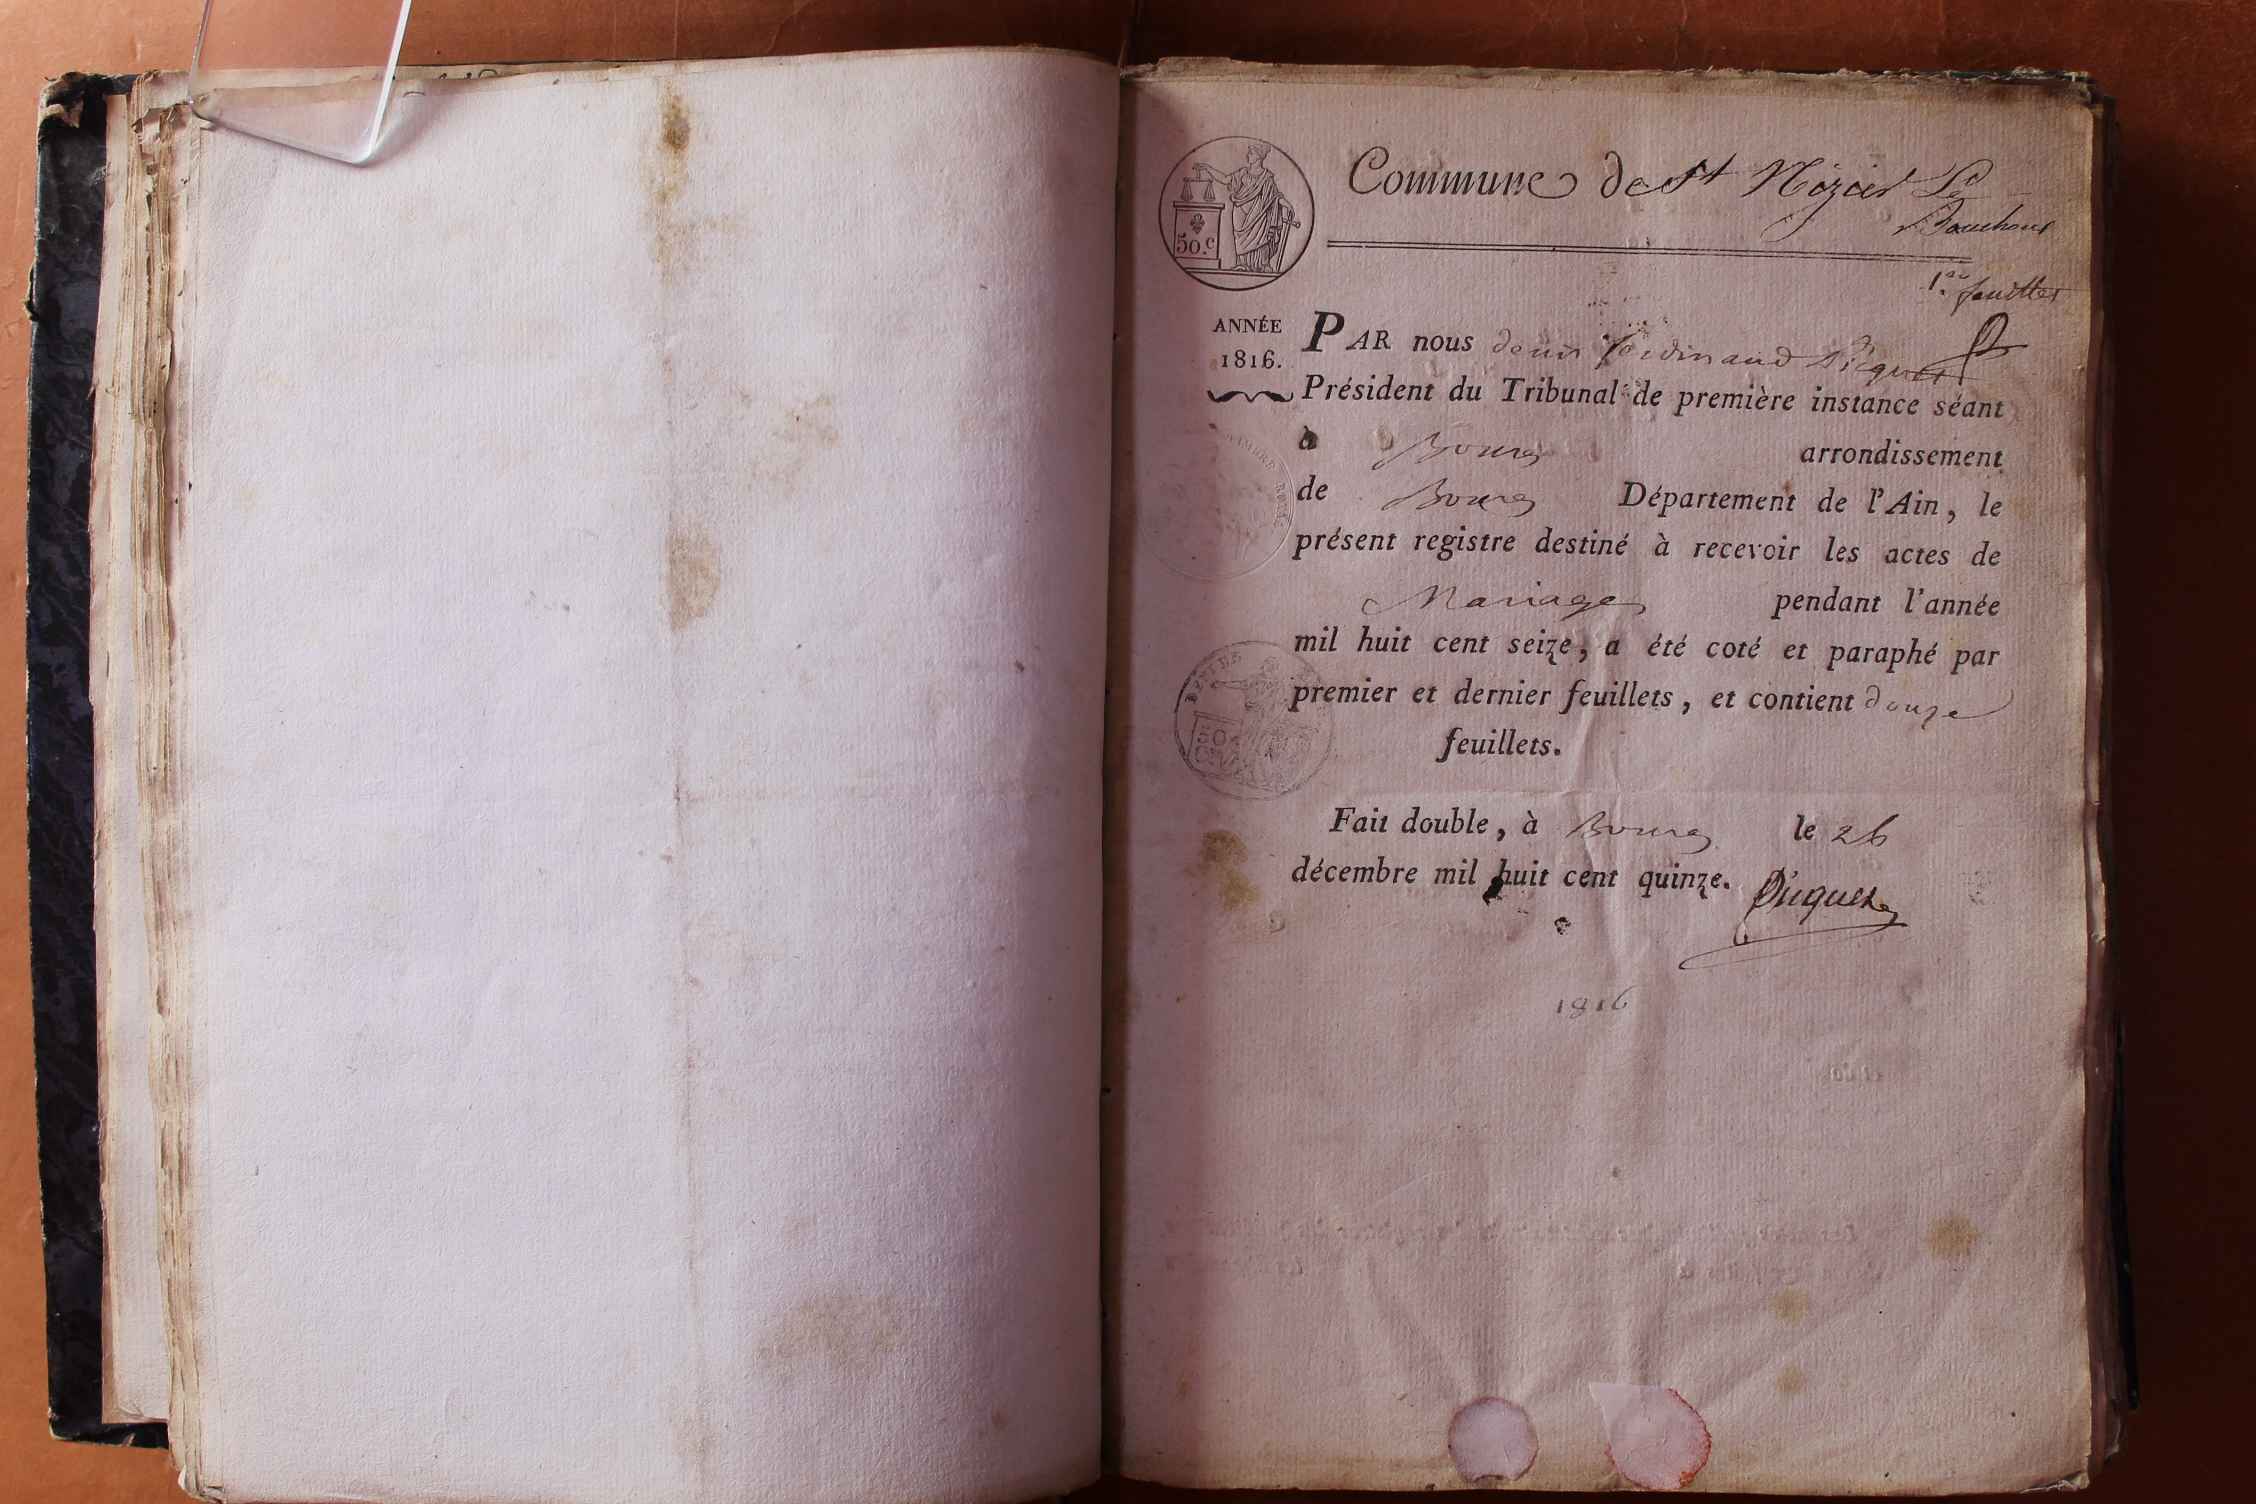 Commune de St Nizier Le
Bouchoux
50.c
1er feuillet
ANNÉE
1816.
PAR nous denis ferdinand Picquet
Président du Tribunal de première instance séant
à Bourg arrondissement
de Bourg Département de l'Ain, le
présent registre destiné à recevoir les actes de
Mariages pendant l'année
mil huit cent seize, a été coté et paraphé par
premier et dernier feuillets, et contient douze
feuillets.
50
Fait double, à Bourg le 26
décembre mil huit cent quinze. Picquet
1816